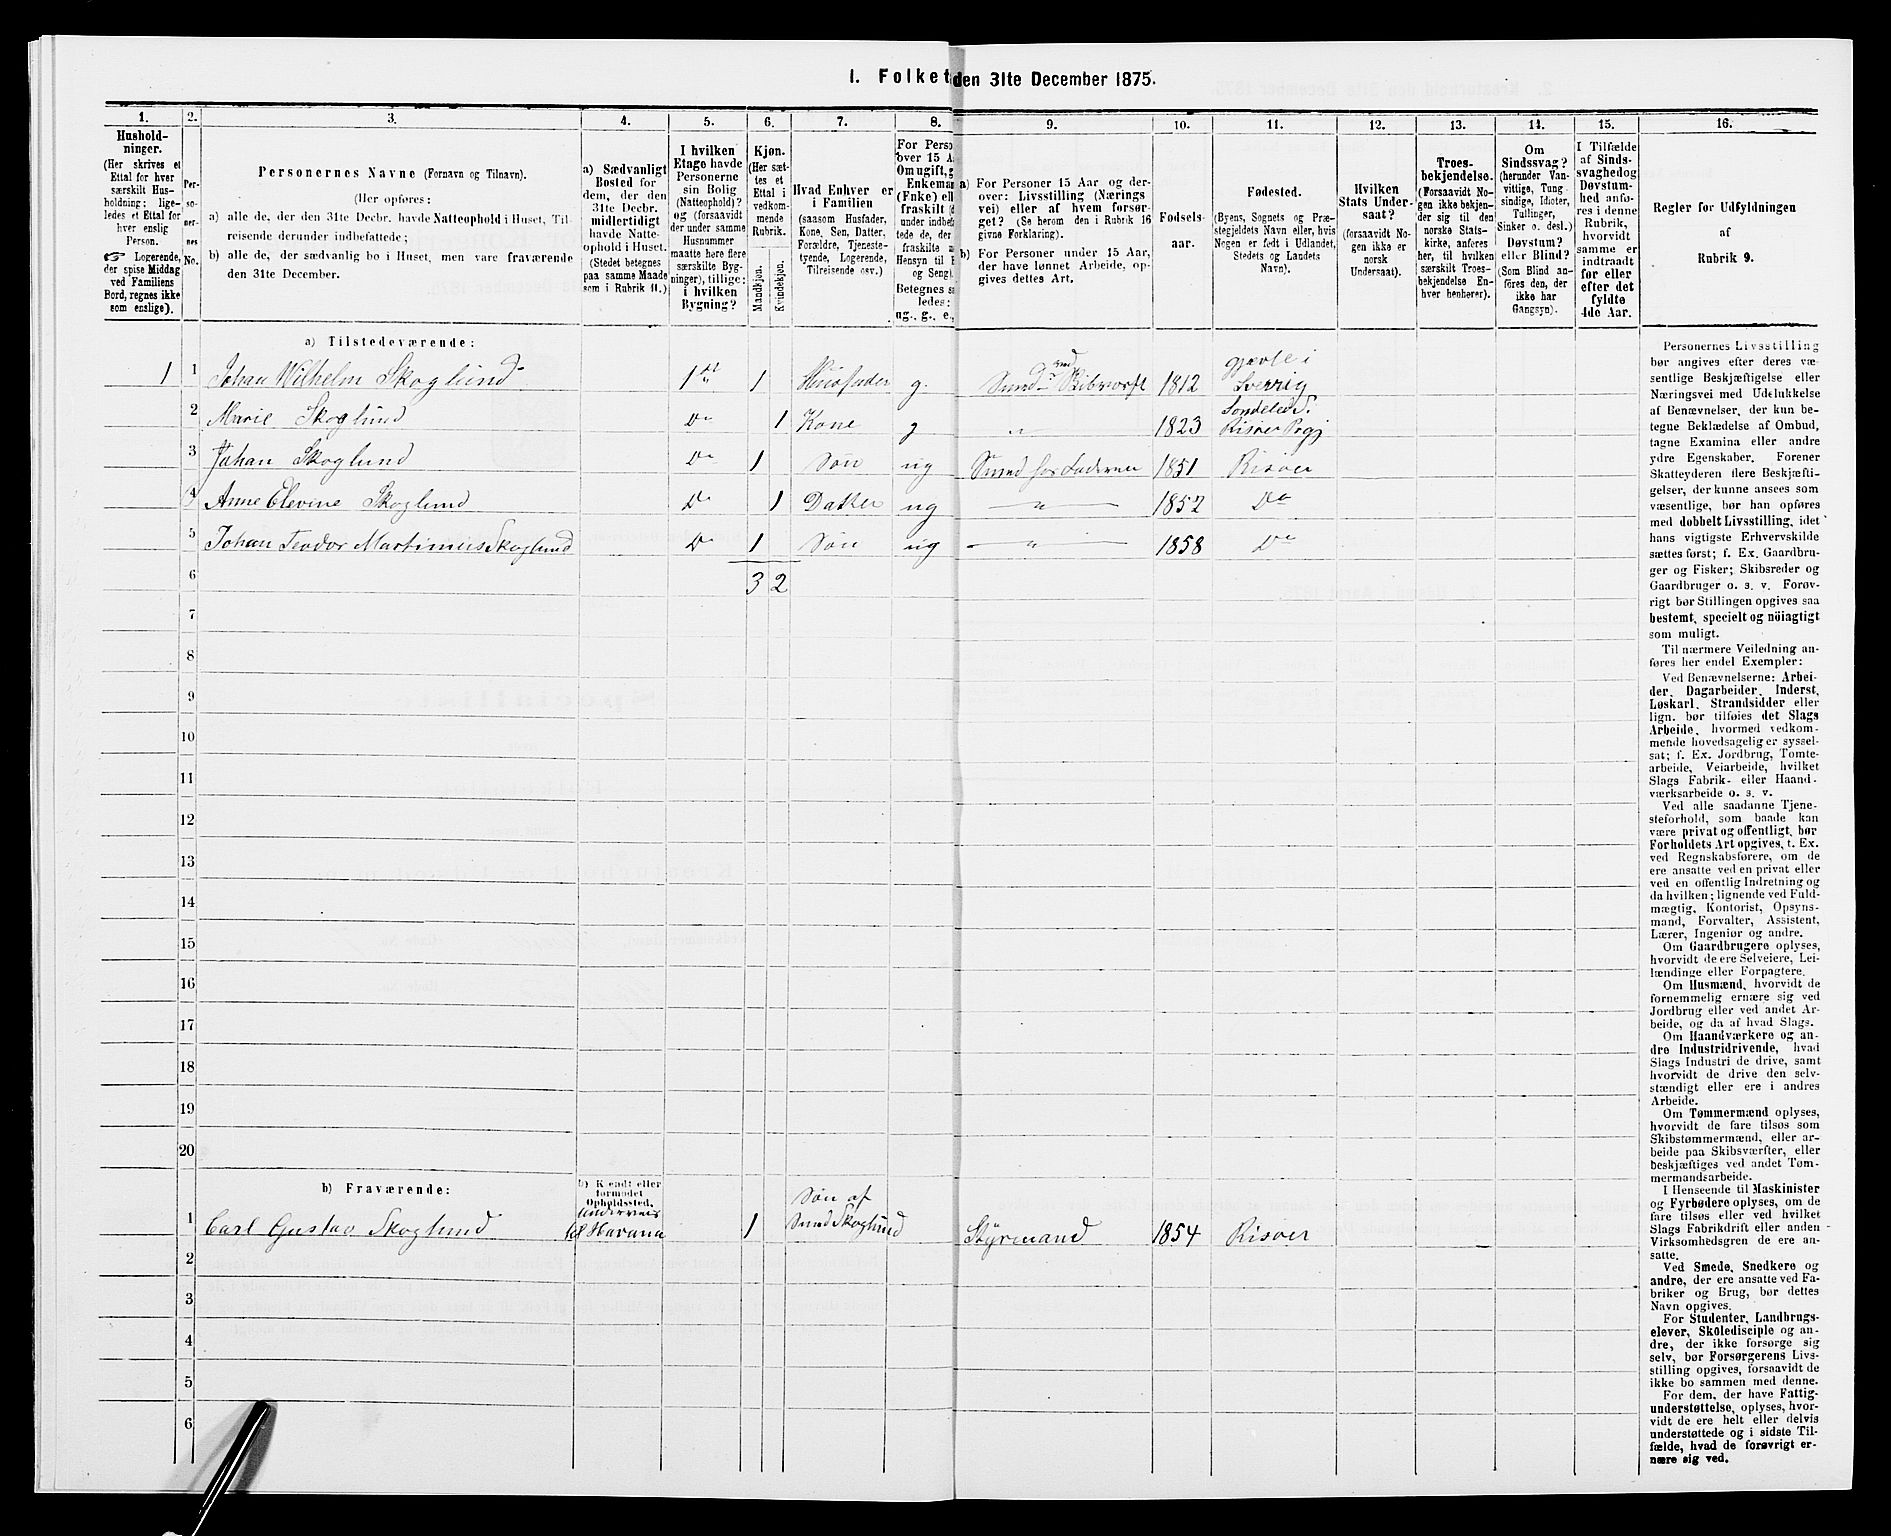 I. Folket den 31te December 1875.
1.
Hushold-
ninger.
(Her skrives et
Ettal for hver
særskilt Hus-
holdning; lige-
ledes et Ettal for
hver enslig
Person.
☞ Logerende,
der spise Middag
ved Familiens
Bord, regnes ikke
som enslige).
2.
Per-
so-
ner-
nes
No.
3.
Personernes Navne (Fornavn og Tilnavn).
(Her opføres:
a) alle de, der den 31te Decbr. havde Natteophold i Huset, Til-
reisende derunder indbefattede;
b) alle de, der sædvanlig bo i Huset, men vare fraværende
den 31te December.
4.
a) Sædvanligt
Bosted for
dem, der den
31te Decbr.
midlertidigt
havde Natte-
ophold i Huset.
(Stedet betegnes
paa samme Maade
som i Rubrik 11.)
5.
I hvilken
Etage havde
Personerne
sin Bolig
(Natteophold)?
og (forsaavidt
der under samme
Husnummer
maatte høre flere
særskilte Byg-
ninger), tillige:
i hvilken
Bygning?
6.
Kjøn.
(Her sæt-
tes et
Ettal i
vedkom-
mende
Rubrik.
Mandkjøn.
Kvindekjøn.
7.
Hvad Enhver er
i Familien
(saasom Husfader,
Kone, Søn, Datter,
Forældre, Tjeneste-
tyende, Logerende,
Tilreisende osv.)
8.
For Perso
over 15 A
Om ugift, g
Enkema
(Enke) ell
fraskilt (
under indbef
tede de, der
fraskilte
Hensyn til
og Seng).
Betegnes s
ledes:
ug., g., e.,
9.
a) For Personer 15 Aar og der-
over: Livsstilling (Nærings
vei) eller af hvem forsør-
get? (Se herom den i Rubrik 16
givne Forklaring).
b) For Personer under 15 Aar,
der have lønnet Arbeide, op-
gives dettes Art.
10.
Fødsels-
aar.
11.
Fødested.
(Byens, Sognets og Præ-
stegjeldets Navn eller, hvis
Nogen er født i Udlandet,
Stedets og Landets
Navn).
12.
Hvilken
Stats Under-
saat?
(forsaavidt No-
gen ikke er
norsk
Undersaat).
13.
Troes-
bekjendelse.
(Forsaavidt No-
gen ikke bekjen-
der sig til den
norske Stats-
kirke, anføres
her, til hvilken
særskilt Troes-
bekjendelse En-
hver henhører).
14.
Om
Sindssvag?
(herunder Van-
vittige, Tung
sindige, Idioter,
Tullinger,
Sinker o. desl.)
Døvstum?
eller Blind?
(Som Blind an-
føres den, der
ikke har
Gangsyn).
15.
I Tilfælde
af Sinds-
svaghed og
Døvstum-
hed anfø-
res i denne
Rubrik,
hvorvidt
samme er
indtraadt
før eller
efter det
fyldte
4de Aar.
16.
Regler for Udfyldningen
af
Rubrik 9.
a) Tilstedeværende:
1 1 Johan Wilhelm Skoglund 1 1 Huusfader g. Smed 1812 gjevle i Sverrig
2 Marie Skoglund Do 1 Kone g " 1823 Sondeled Risøer Pregj
3 Johan Skoglund Do 1 Søn ug Smed hos Faderen 1851 Risøer
4 Anne Elevine Skoglund Do 1 Datter ug " 1852 Do
5 Johan Teodor Martinius Skoglund Do 1 Søn ug " 1858 Do
6 3 2
7
8
9
10
11
12
13
14
15
16
17
18
19
20
b) Fraværende:
b) Kjendt eller
formodet
Opholdssted.
1 Carl Gustav Skoglund underveis til Havana 1 Søn af Smed Skoglund Styrmand 1854 Risøer
2
3
4
5
6
Personernes Livsstilling
bør angives efter deres væ-
sentlige Beskjæftigelse eller
Næringsvei med Udelukkelse
af Benævnelser, der kun be-
tegne Beklædelse af Ombud,
tagne Examina eller andre
ydre Egenskaber. Forener
Skatteyderen flere Beskjæfti-
gelser, der kunne ansees som
væsentlige, bør han opføres
med dobbelt Livsstilling, idet
hans vigtigste Erhvervskilde
sættes først; f. Ex. Gaardbru-
ger og Fisker; Skibsreder og
Gaardbruger o. s. v. Forøv-
rigt bør Stillingen opgives saa
bestemt, specielt og nöiagtigt
som muligt.
Til nærmere Veiledning an-
føres her endel Exempler:
Ved Benævnelserne: Arbei-
der, Dagarbeider, Inderst,
Løskarl, Strandsidder eller
lign. bør tilføies det Slags
Arbeide, hvormed vedkom-
mende hovedsagelig er syssel-
sat; f. Ex. Jordbrug, Tomte-
arbeide, Veiarbeide, hvilket
Slags Fabrik- eller Haand-
værksarbeide o. s. v.
Ved alle saadanne Tjene-
steforhold, som baade kan
være privat og offentligt, bør
Forholdets Art opgives, t. Ex.
ved Regnskabsførere, om de
ere ansatte ved en privat eller
ved en offentlig Indretning og
da hvilken; lignende ved Fuld-
mægtig, Kontorist, Opsyns-
mand, Forvalter, Assistent,
Lærer, Ingeniør og andre.
Om Gaardbrugere oplyses,
hvorvidt de ere Selveiere, Lei-
lændinge eller Forpagtere.
Om Husmænd, hvorvidt de
fornemmelig ernære sig ved
Jordbrug eller ved andet Ar-
beide, og da af hvad Slags.
Om Haandværkere og an-
dre Industridrivende, hvad
Slags Industri de drive, samt
hvorvidt de drive den selv-
stændigt eller ere i andres
Arbeide.
Om Tømmermænd oplyses,
hvorvidt de fare tilsøs som
Skibstømmermænd, eller ar-
beide paa Skibsværfter, eller
beskjæftiges ved andet Tøm-
mermandsarbeide.
I Henseende til Maskinister
og Fyrbødere oplyses, om de
fare tilsøs eller ved hvilket
Slags Fabrikdrift eller anden
Virksomhedsgren de ere an-
satte.
Ved Smede, Snedkere og
andre, der ere ansatte ved Fa-
briker og Brug, bør dettes
Navn opgives.
For Studenter, Landbrugs-
elever, Skoledisciple og an-
dre, der ikke forsørge sig
selv, bør Forsørgerens Livs-
stilling opgives, forsaavidt de
ikke bo sammen med denne.
For dem, der have Fattig-
understøttelse, oplyses, hvor-
vidt de ere helt eller delvis
understøttede og i sidste Til-
fælde, hvad de forøvrigt er-
nære sig ved.